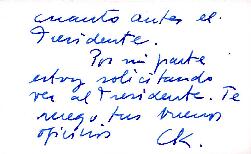 cuanto antes el
Presidente.
Por mi parte
estoy solicitando
ver al Presidente. Te
ruego, tus buenos
oficios
CK.